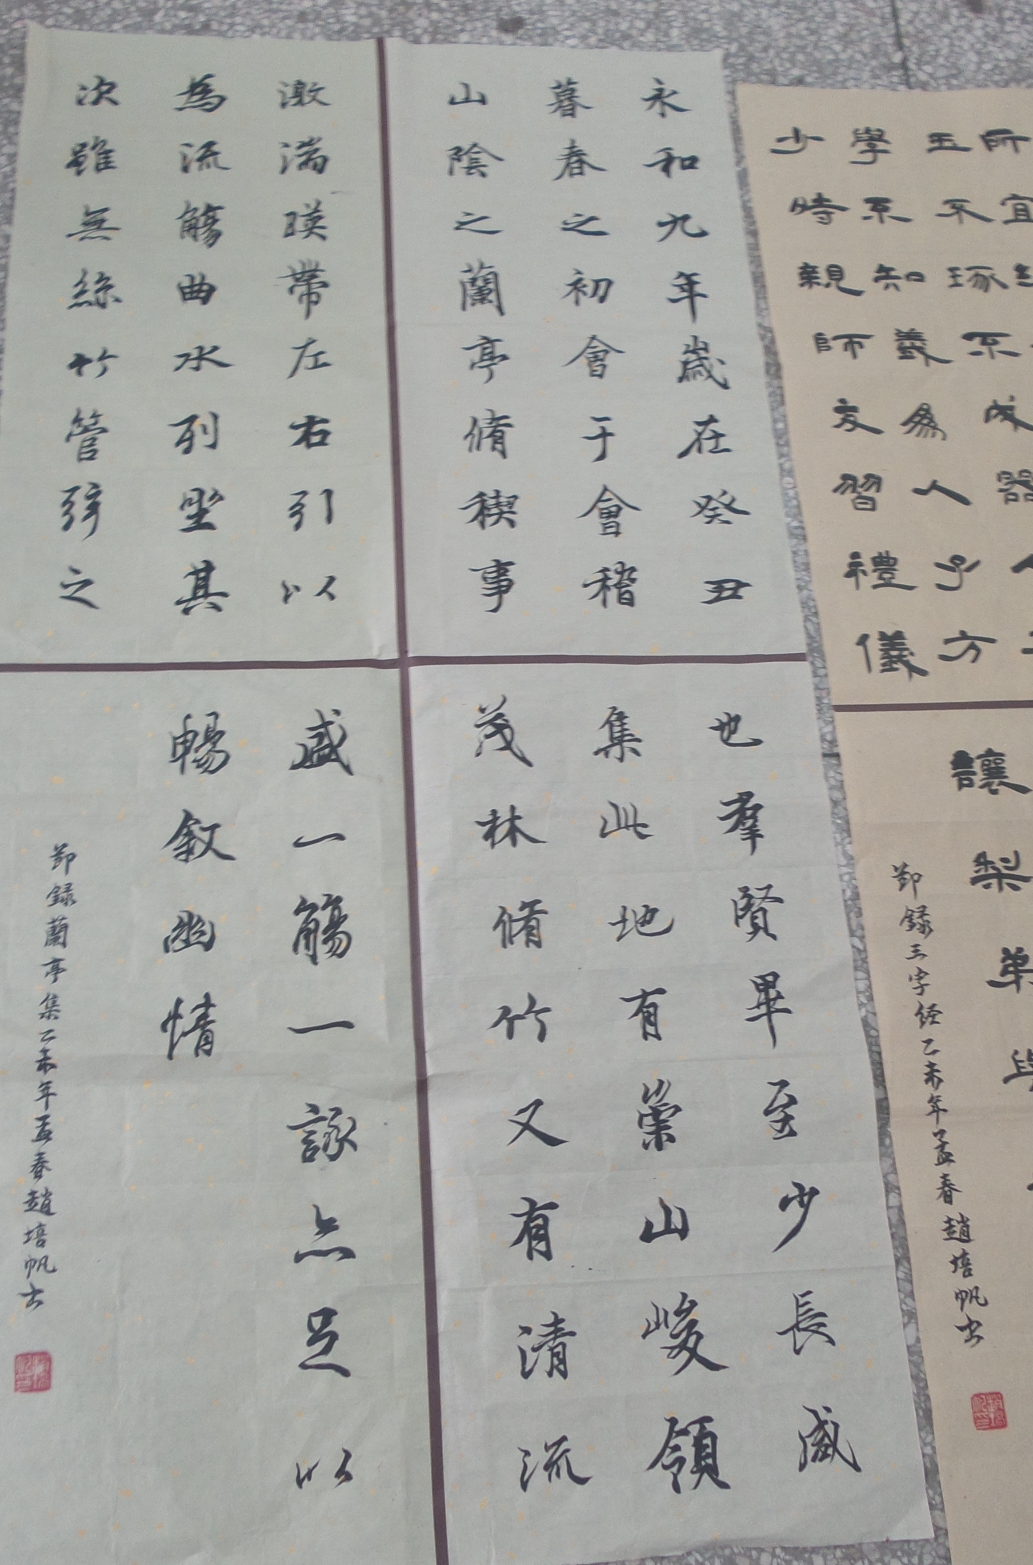 所宜
玉不琢不成器
學不知義為人子方
少時親師友習禮儀
讓梨
節録三字經乙未年孟春趙培帆書
永和九年歲在癸丑
暮春之初會于會稽
山陰之蘭亭脩稧事
也羣賢畢至少長咸
集此地有崇山峻領
茂林脩竹又有清流
激湍暎帶左右引以
為流觴曲水列坐其
次雖無絲竹管弦之
盛一觴一詠亦足以
暢叙幽情
節録蘭亭集乙未年孟春趙培帆書